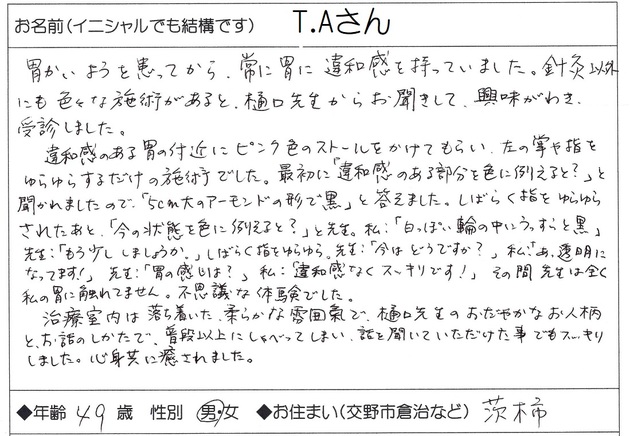 お名前(イニシャルでも結構です) T.Aさん
胃かいようを患ってから、常に胃に違和感を持っていました。針灸以外
にも色々な施術があると、樋口先生からお聞きして、興味がわき、
受診しました。
違和感のある胃の付近にピンク色のストールをかけてもらい、左の掌や指を
ゆらゆらするだけの施術でした。最初に「違和感のある部分を色に例えると?」と
聞かれましたので、「5cm大のアーモンドの形で黒」と答えました。しばらく指をゆらゆら
されたあと、「今の状態を色に例えると?」と先生。私:「白っぽい輪の中にうっすらと黒」
先生:「もう少ししましょうか。」しばらく指をゆらゆら。先生:「今はどうですか?」私:「あ、透明に
なってます!」先生:「胃の感じは?」私:「違和感なくスッキリです!」その間先生は全く
私の胃に触れてません。不思議な体験でした。
治療室内は落ち着いた、柔らかな雰囲気で、樋口先生のおだやかなお人柄
と、お話のしかたで、普段以上にしゃべってしまい、話を聞いていただけた事でもスッキリ
しました。心身共に癒されました。
◆年齢 49 歳 性別 男・女 ◆お住まい(交野市倉治など) 茨木市